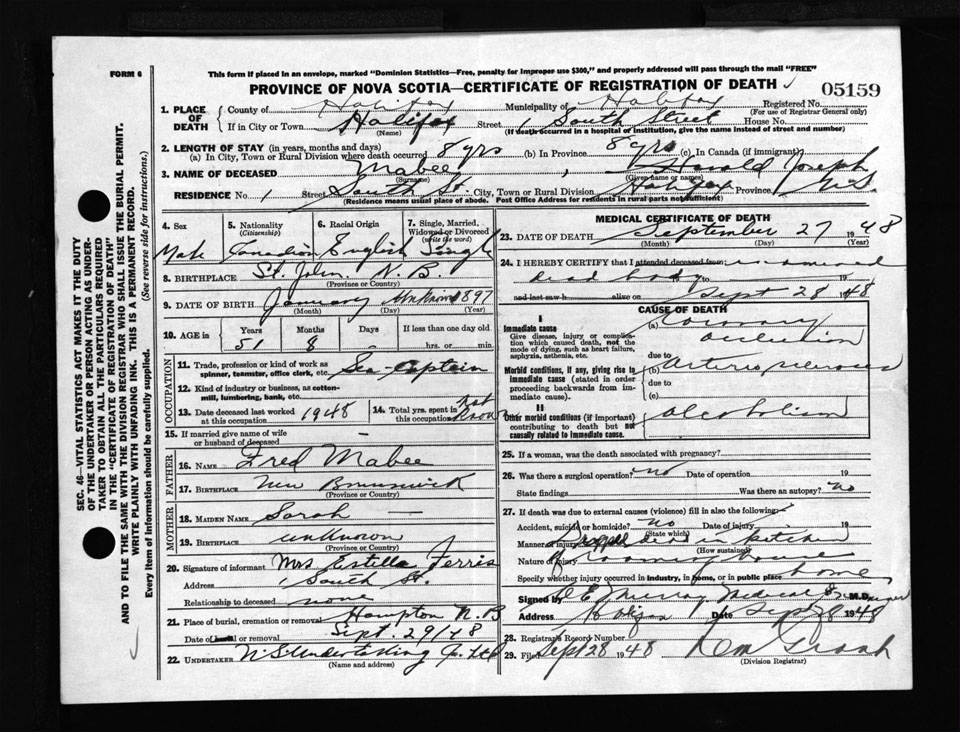 FORM 6
This form if placed in an envelope, marked "Dominion Statistics—Free, penalty for improper use $300," and properly addressed will pass through the mail "FREE"
PROVINCE OF NOVA SCOTIA—CERTIFICATE OF REGISTRATION OF DEATH
05159
1. PLACE OF DEATH
County of Halifax Municipality of Halifax Registered No.
(For use of Registrar General only)
If in City or Town Halifax Street 1 South Street House No.
(Name) (If death occurred in a hospital or institution, give the name instead of street and number)
2. LENGTH OF STAY (in years, months and days)
(a) In City, Town or Rural Division where death occurred 8 yrs (b) In Province 8 yrs (c) In Canada (if immigrant)
3. NAME OF DECEASED Mabee, Harold Joseph
(Surname) (Given name or names)
RESIDENCE No. 1 Street South St. City, Town or Rural Division Halifax Province N.S.
(Residence means usual place of abode. Post Office Address for residents in rural parts not sufficient)
4. Sex
5. Nationality (Citizenship)
6. Racial Origin
7. Single, Married, Widowed or Divorced (write the word)
Male Canadian English Single
8. BIRTHPLACE St. John. N.B.
(Province or Country)
9. DATE OF BIRTH January Unknown 1897
(Month) (Day) (Year)
10. AGE in Years Months Days If less than one day old
51 8 - hrs. or min.
OCCUPATION
11. Trade, profession or kind of work as spinner, teamster, office clerk, etc. Sea-Captain
12. Kind of industry or business, as cotton-mill, lumbering, bank, etc.
13. Date deceased last worked at this occupation 1948
14. Total yrs. spent in this occupation Not Known
15. If married give name of wife or husband of deceased —
FATHER
16. NAME Fred Mabee
17. BIRTHPLACE New Brunswick
(Province or Country)
MOTHER
18. MAIDEN NAME Sarah —
19. BIRTHPLACE unknown
(Province or Country)
20. Signature of informant Mrs Estella Ferris
Address 1 South St.
Relationship to deceased none
21. Place of burial, cremation or removal Hampton N.B
Date of burial or removal Sept. 29/48
22. UNDERTAKER N.S. Undertaking Co. Ltd
(Name and address)
MEDICAL CERTIFICATE OF DEATH
23. DATE OF DEATH September 27 1948
(Month) (Day) (Year)
24. I HEREBY CERTIFY that I attended deceased from
dead body to 19
and last saw h alive on Sept 28 1948
CAUSE OF DEATH
I
Immediate cause
Give disease, injury or complication which caused death, not the mode of dying, such as heart failure, asphyxia, asthenia, etc.
(a) Coronary occlusion
due to
Morbid conditions, if any, giving rise to immediate cause (stated in order proceeding backwards from immediate cause).
(b) Arterio sclerosis
due to
(c)
II
Other morbid conditions (if important) contributing to death but not causally related to immediate cause.
alcoholism
25. If a woman, was the death associated with pregnancy?
26. Was there a surgical operation? no Date of operation 19
State findings Was there an autopsy? no
27. If death was due to external causes (violence) fill in also the following:
Accident, suicide or homicide? no Date of injury 19
(State which)
Manner of injury Dropped dead in kitchen
(How sustained)
Nature of injury of rooming house
Specify whether injury occurred in industry, in home, or in public place home
Signed by Murray Medical Examiner M.D.
Address Halifax Date Sept 28 1948
28. Registrar's Record Number
29. Filed Sept 28 1948
(Division Registrar)
SEC. 46—VITAL STATISTICS ACT MAKES IT THE DUTY
OF THE UNDERTAKER OR PERSON ACTING AS UNDER-
TAKER TO OBTAIN ALL THE PARTICULARS REQUIRED
IN THE "CERTIFICATE OF REGISTRATION OF DEATH"
AND TO FILE THE SAME WITH THE DIVISION REGISTRAR WHO SHALL ISSUE THE BURIAL PERMIT.
WRITE PLAINLY WITH UNFADING INK. THIS IS A PERMANENT RECORD.
Every item of information should be carefully supplied. (See reverse side for instructions.)